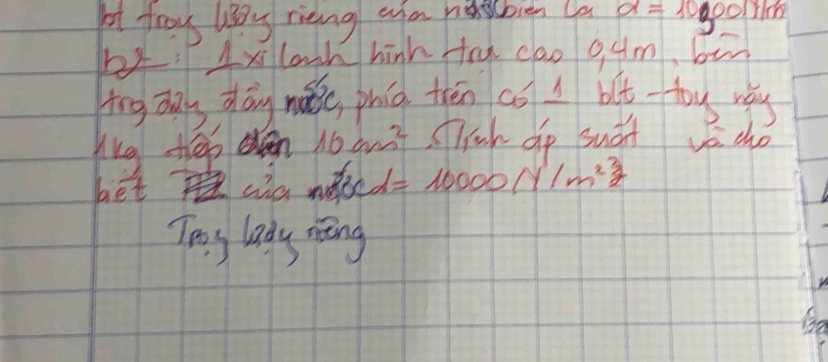 bt trọng lượng riêng của nước biển là d = 10300N/m
b2: 1 xi lanh hình trụ cao 0,4m, bên
trg đựng đầy nước, phía trên có 1 bít-tông nặng
1kg tiếp diện 10 cm². Tính áp suất và cho
biết của nước d = 10000N/m³
Trọng lượng riêng